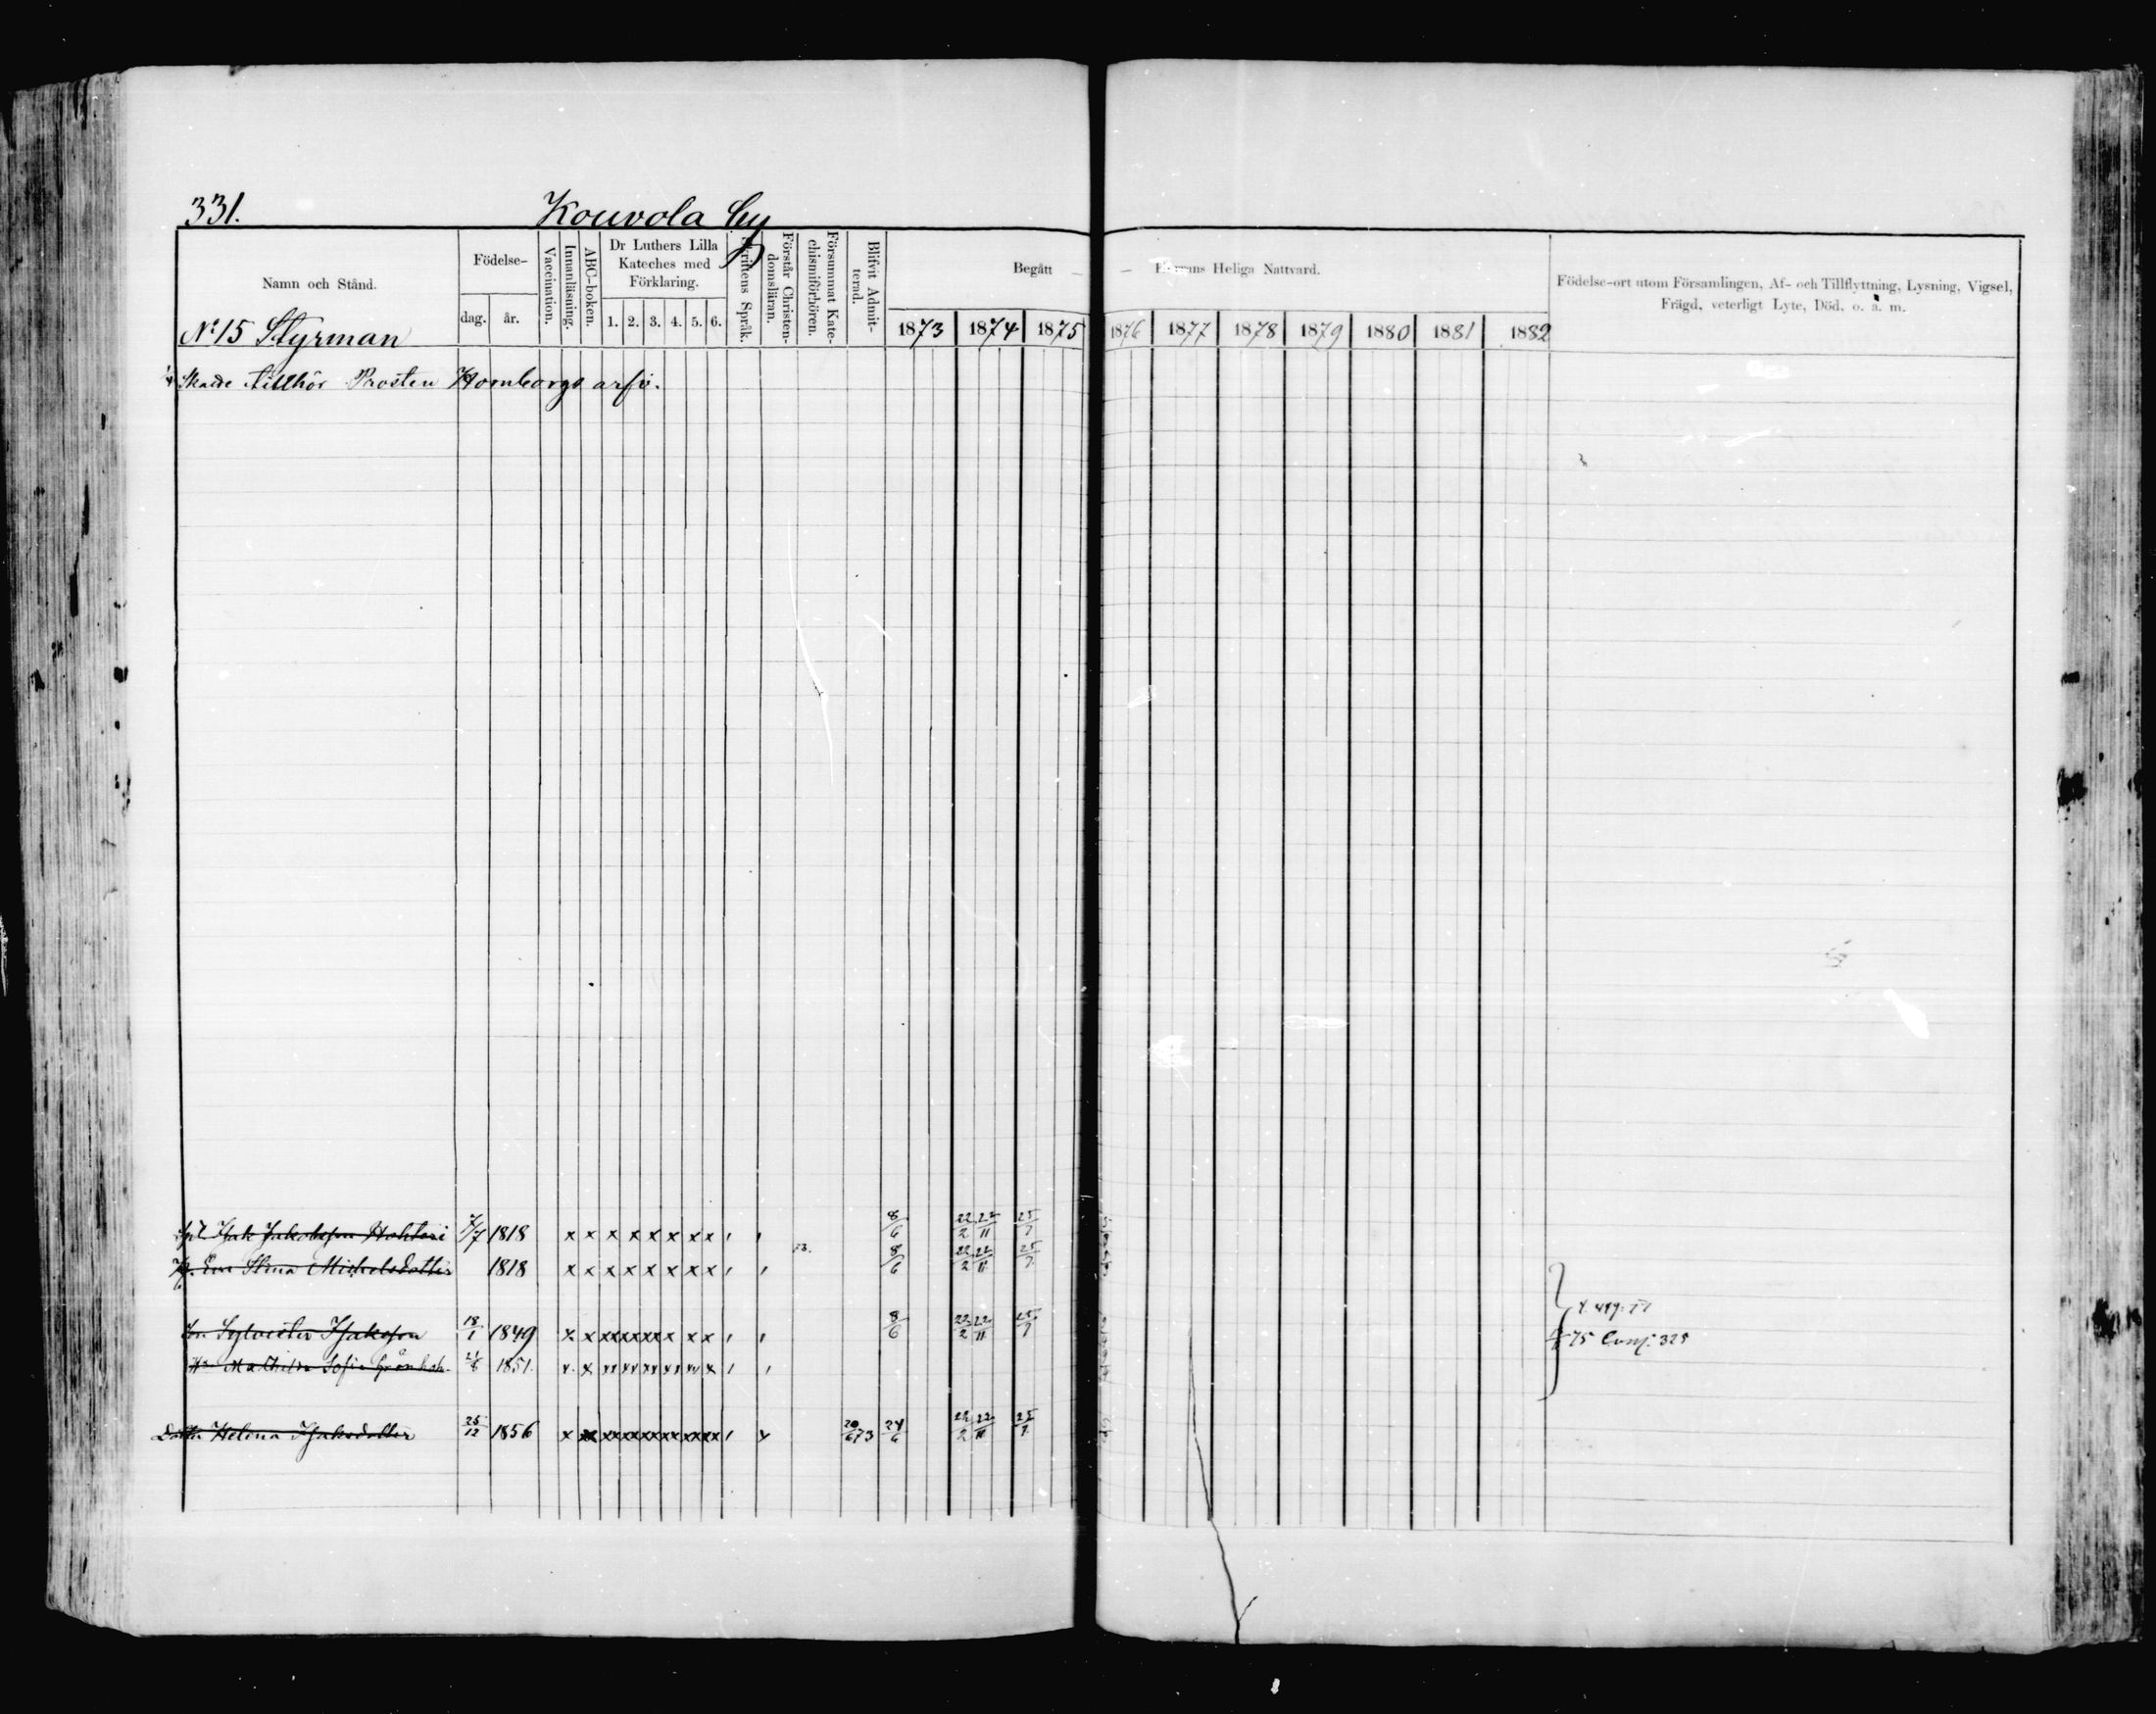 331. Kouvola by
Namn och Stånd.
Födelse-
dag. år.
Vaccination.
Innanläsning.
ABC-boken.
Dr Luthers Lilla
Kateches med
Förklaring.
1. 2. 3. 4. 5. 6.
Skriftens Språk.
Förstår Christen-
domsläran.
Försummat Kate-
chismiförhören.
Blifvit Admit-
terad.
Begått — — Herrans Heliga Nattvard.
1873 1874 1875 1876 1877 1878 1879 1880 1881 1882
Födelse-ort utom Församlingen, Af- och Tillflyttning, Lysning, Vigsel,
Frägd, veterligt Lyte, Död, o. a. m.
No 15 Styrman
tillhör Prosten Homborgs arfv.
Isak Jakobsson 1818 x x x x x x x x 8/6 22/2 22/11 25/7
Eva Stina Michelsdotter 1818 x x x x x x x x 8/6 22/2 22/11 25/7
Sylvester Isaksson 18/1 1849 x x xx xx xx x x x 8/6 22/2 22/11 25/7
Mathilda Sofia 1851. x x xx xx xx xx xx x
75 325
Helena Isaksdotter 25/12 1856 x xx xx xx xx xx xx xx 20/6 73 24/6 22/2 22/11 25/7